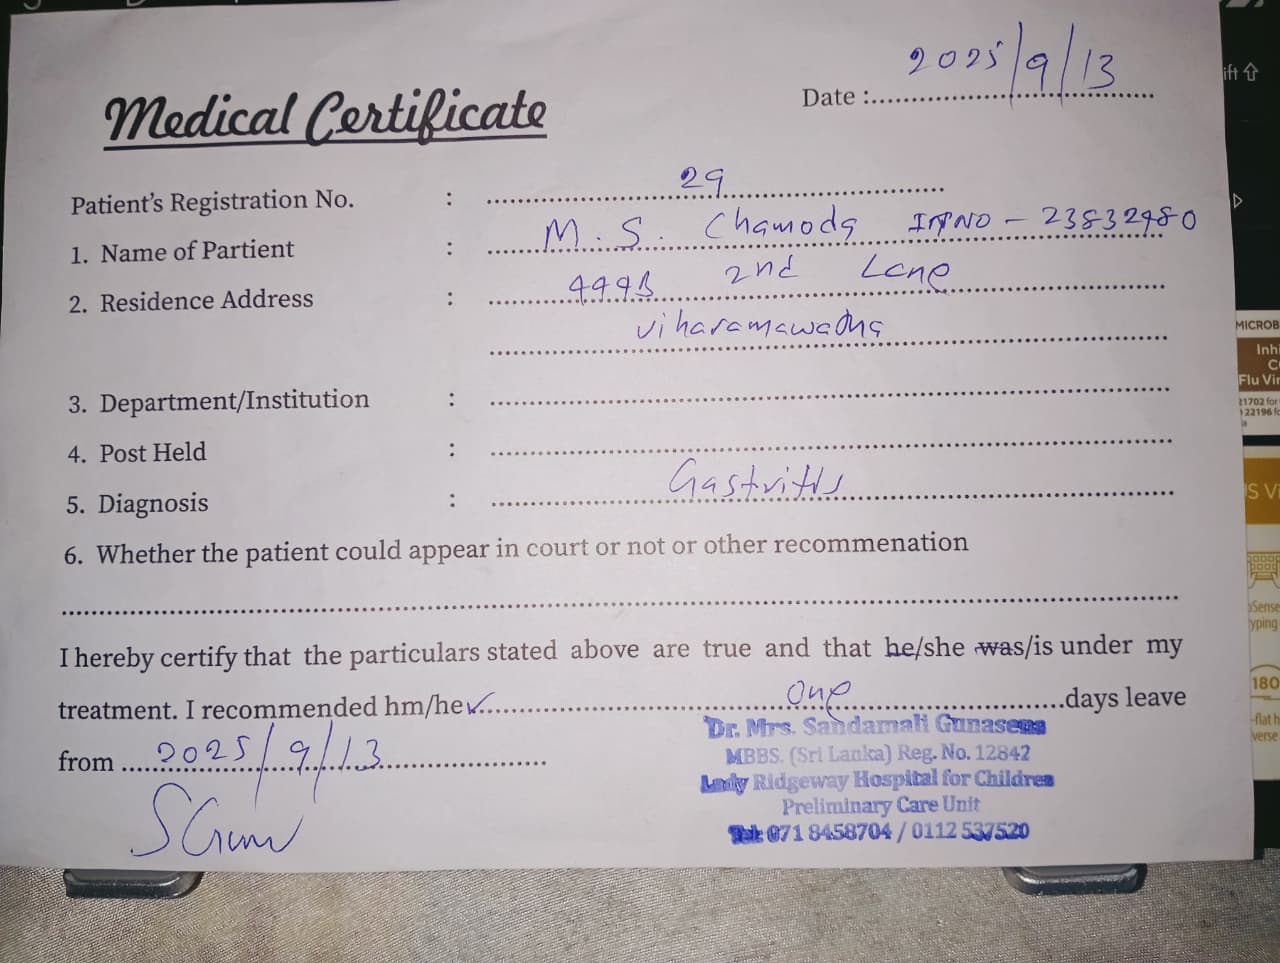 2025/9/13
Date :
Medical Certificate
Patient's Registration No. : 29
1. Name of Partient : M. S. Chamoda NO - 23832980
2. Residence Address : 444B 2nd Lane
viharamawatha
3. Department/Institution :
4. Post Held :
5. Diagnosis : Gastritis
6. Whether the patient could appear in court or not or other recommenation
I hereby certify that the particulars stated above are true and that he/she was/is under my
treatment. I recommended hm/her one days leave
from 2025/9/13
Dr. Mrs. Sandamali Gunasena
MBBS. (Sri Lanka) Reg. No. 12842
Lady Ridgeway Hospital for Children
Preliminary Care Unit
Tel: 071 8458704 / 0112 537520
SGun
ift ⇧
MICROB
Inhi
Flu Vir
21702 for
22196 fo
S Vi
Sense
yping
180
-flat h
verse